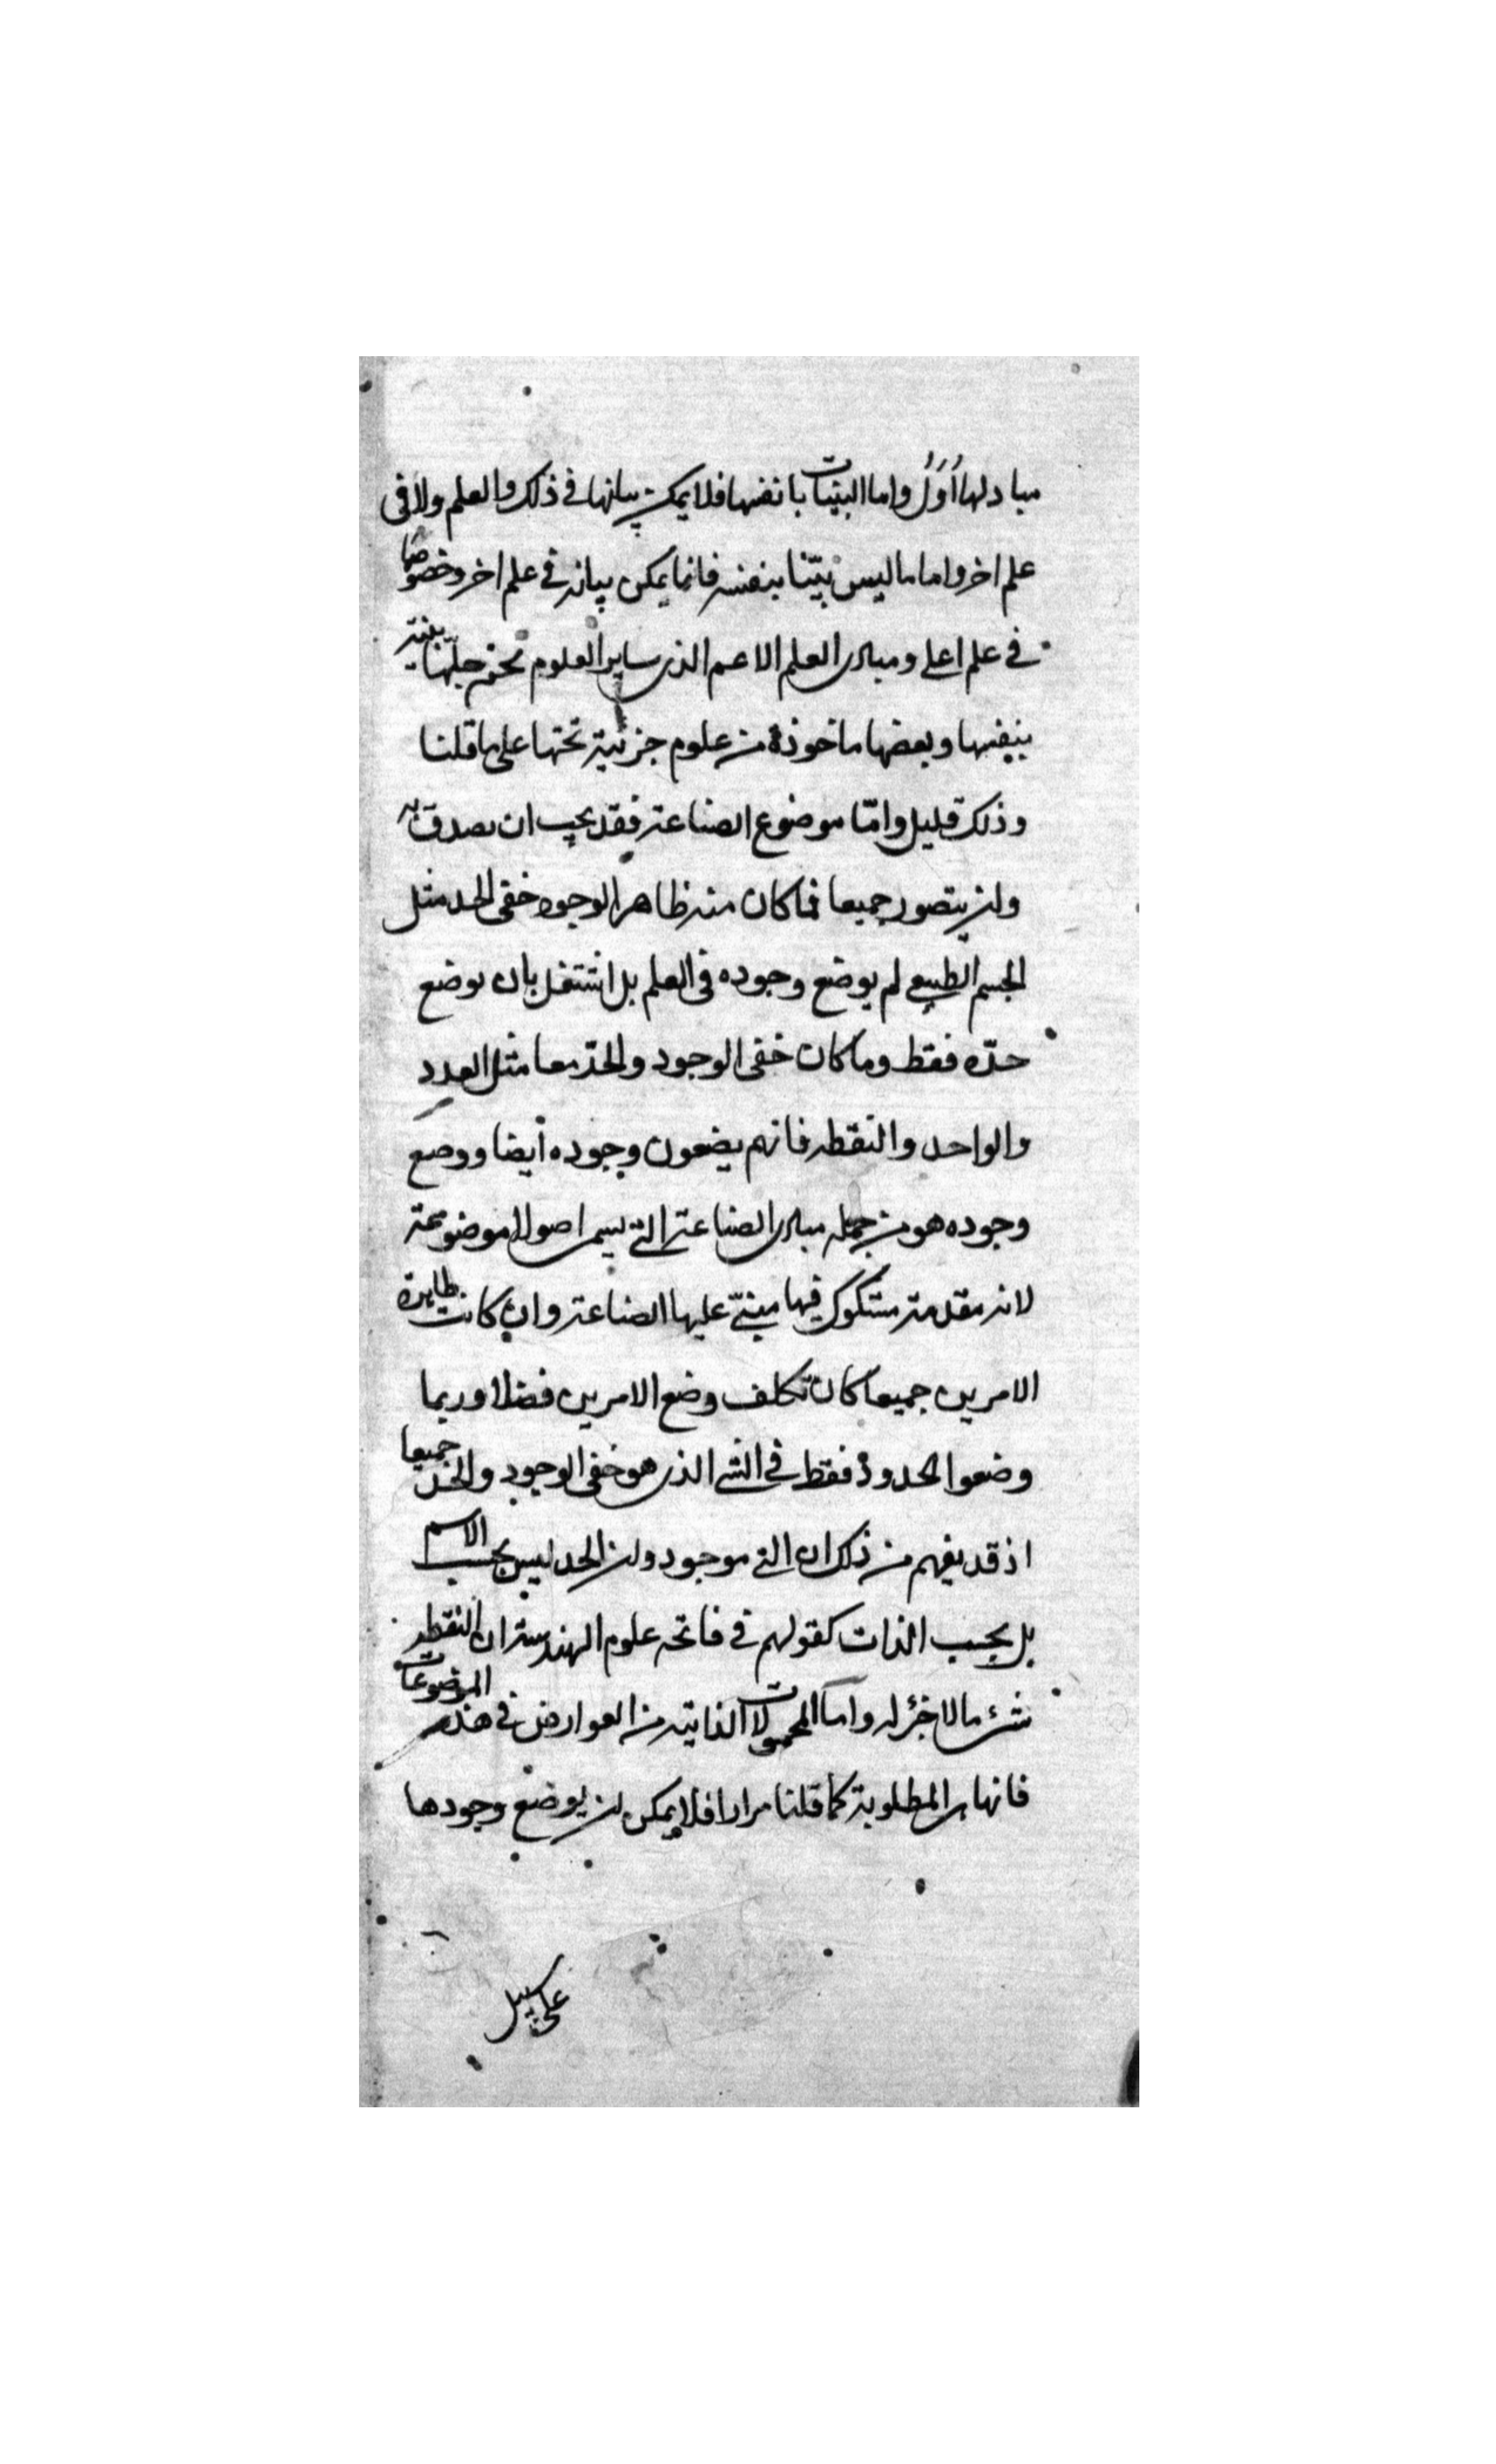 مبادلها اُوَلُ واما البينات بانفسها فلا يمكن بيانها فى ذلك والعلم ولا فى
علم اخر واما ما ليس بيّنا بنفسه فانما يمكن بيانه فى علم اخر وخصوصًا
فى علم اعلى ومبادى العلم الاعم الذى ساير العلوم تحته جلّها بينة
بنفسها وبعضها ماخوذة من علوم جزئية تحتها على ما قلنا
وذلك قليل وامّا موضوع الصناعة فقد يجب ان يصدق به
وان يتصور جميعا فما كان منه ظاهر الوجود خفى الحد مثل
الجسم الطبيعى لم يوضع وجوده فى العلم بل اشتغل بان يوضع
حدّه فقط وما كان خفى الوجود والحدّ معا مثل العدد
والواحد والنقطه فانهم يضعون وجوده أيضا ووضع
وجوده هو من جمله مبادى الصناعة التى يسمى اصولا موضوعة
لانه مقدمة مشكوك فيها مبنىّ عليها الصناعة وان كانت ظاهرة
الامرين جميعا كان تكلف وضع الامرين فضلا وربما
وضعوا الحدود فقط فى الشى الذى هو خفى الوجود والحد جميعا
اذ قد يفهم من ذلك ان الشى موجود وان الحد ليس بحسب الاسم
بل بحسب الذات كقولهم فى فاتحه علوم الهندسة ان النقطه
شئ ما لا جزء له واما المحمولات الذاتيه من العوارض فى هذه الموضوعات
فانها هى المطلوبة كما قلنا مرارا فلا يمكن ان يوضع وجودها
على سبيل